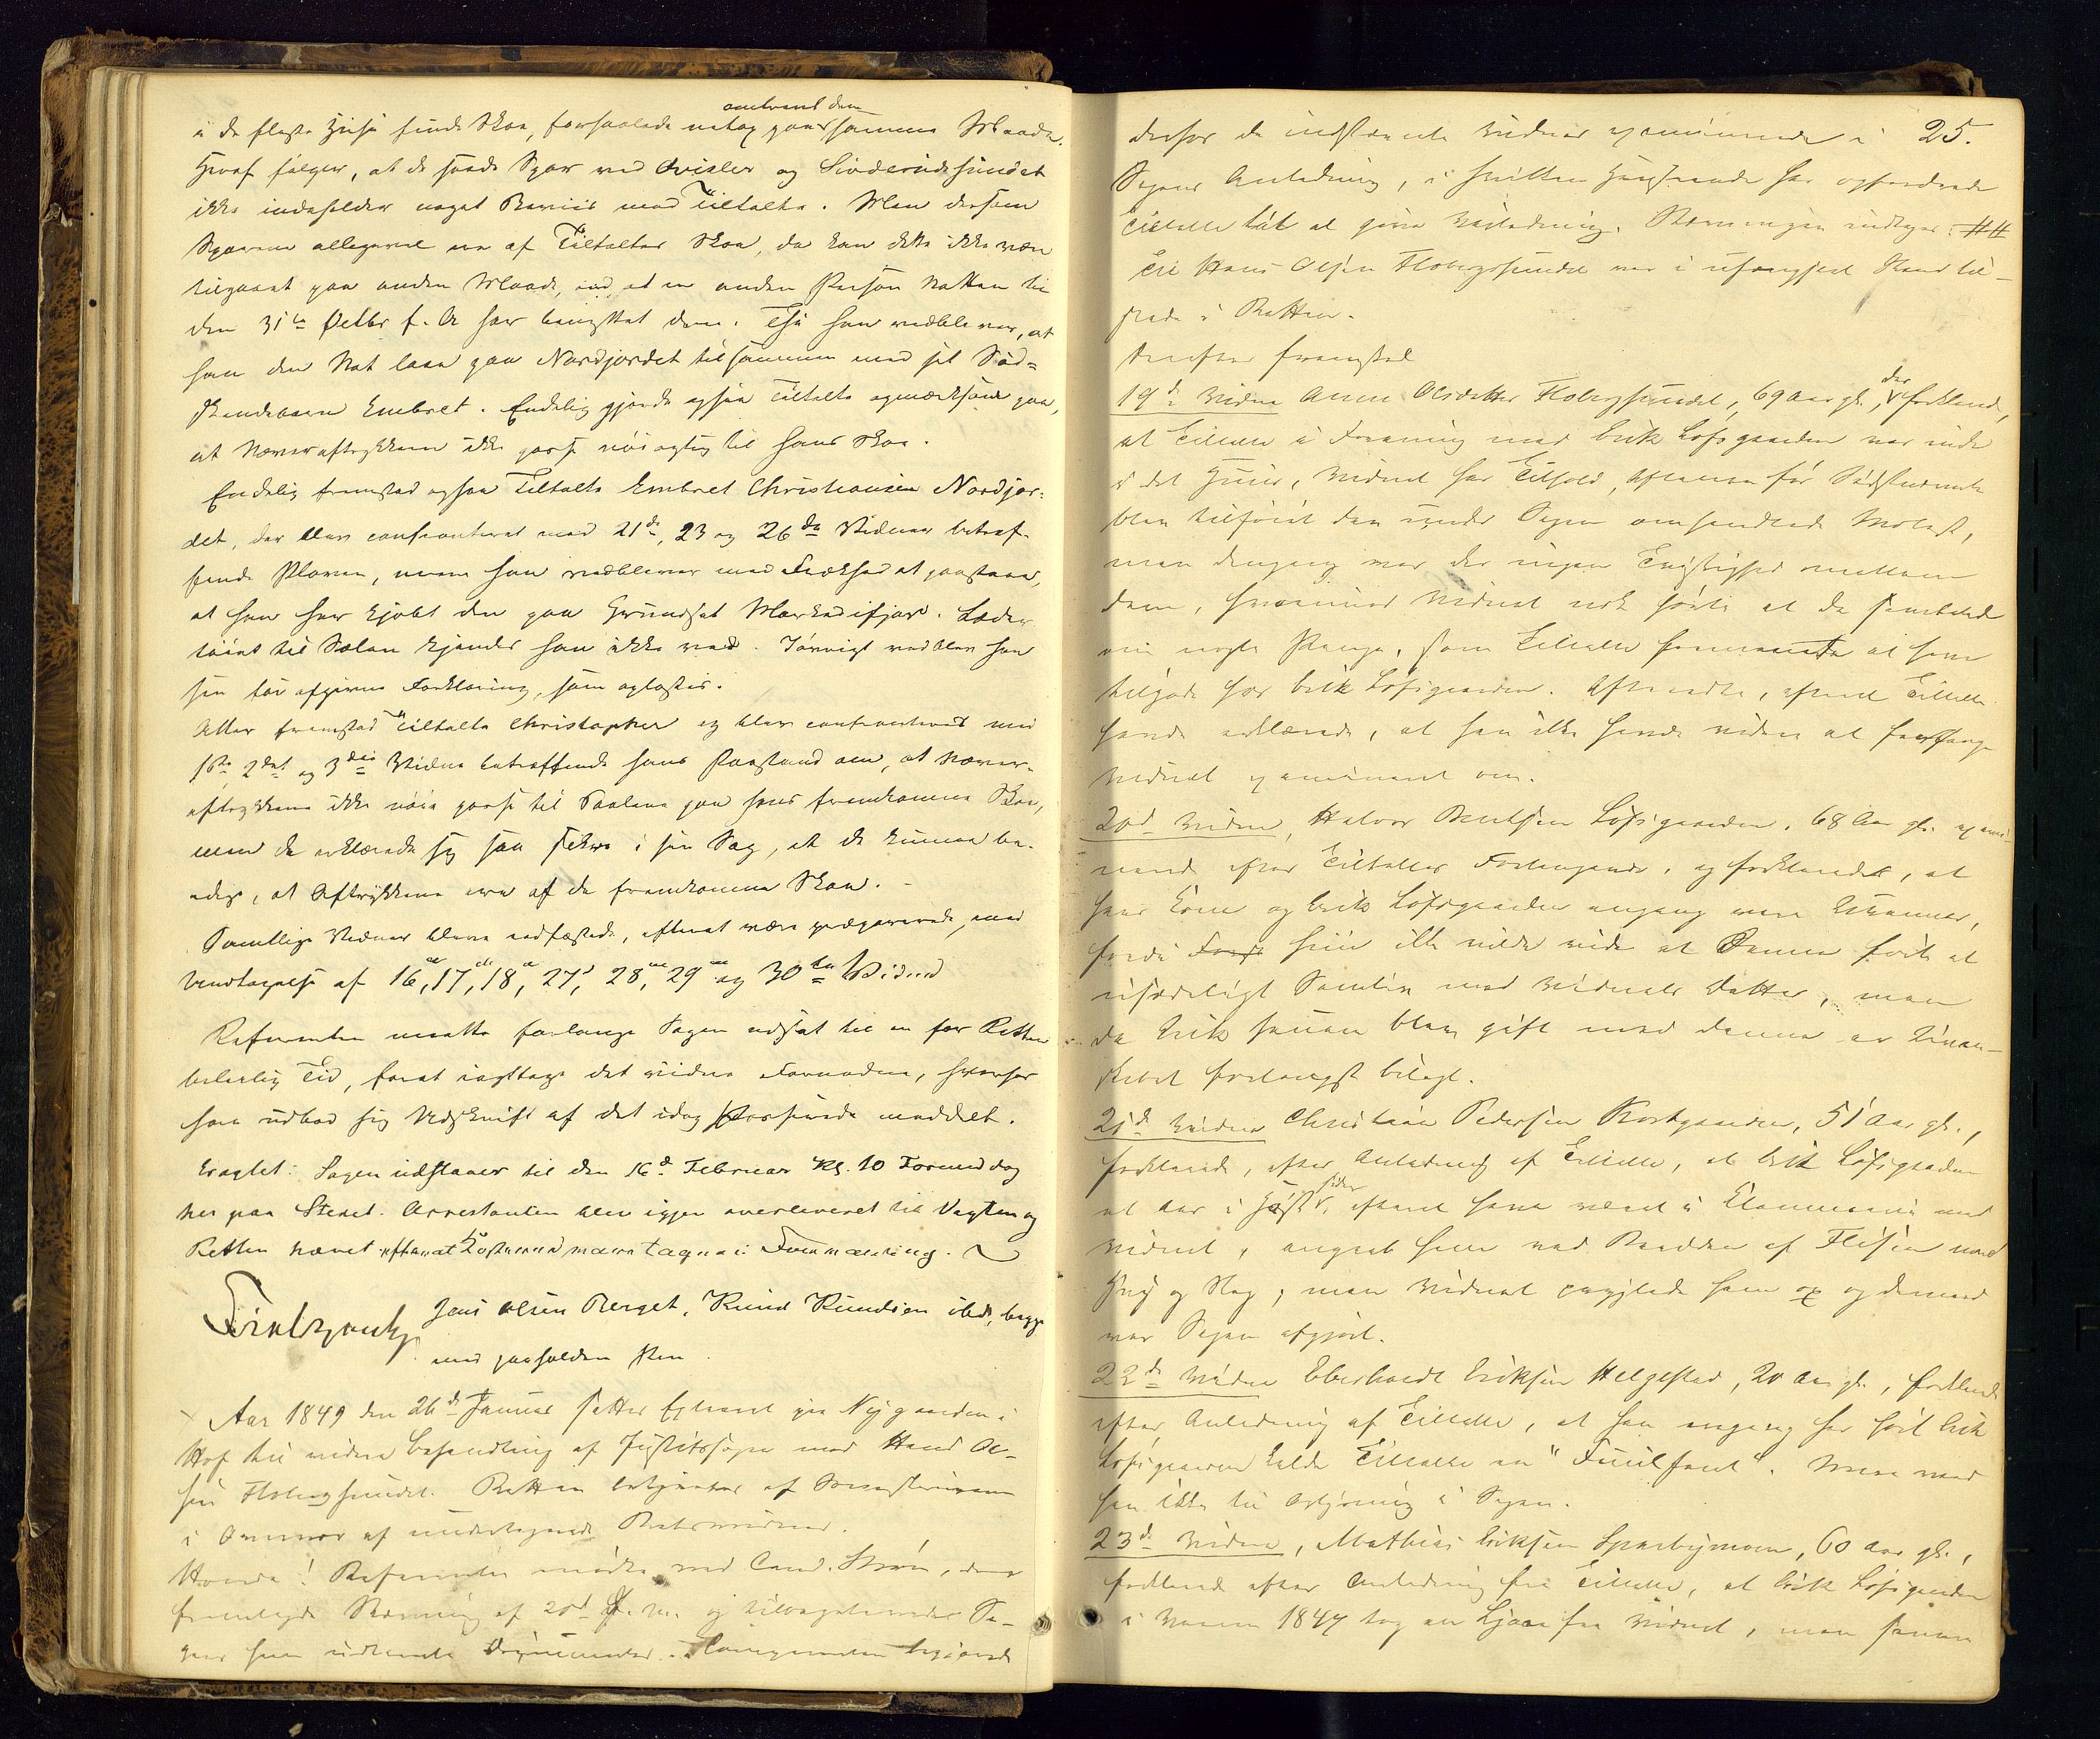 i de fleste Huse finde Skoe, forsaalede netop paa omtrent den samme Maade.
Heraf følger, at de paa Spor ved Qvisler og Sinderudsundet
ikke indeholder noget Beviis mod Tiltalte. Men dersom
Sporene alligevel ere af Tiltaltes Skoe, da kan dette ikke være
tilgaaet paa anden Maade, end at en anden Person Natten til
den 31te Octbr f. A har benyttet dem. Thi han vedblever, at
han den Nat laae paa Nordjordet tilsammen med sit Sød-
skendebarn Embret. Endelig gjorde ogsaa Tiltalte opmærksom paa,
at Næveraftrykkene ikke passe nøiagtig til hans Skoe.
Endelig fremstod ogsaa Tiltalte Embret Christiansen Nordjor-
det, der blev confronteret med 21de, 23 og 26de Vidner betref-
fende Ploven, men han vedblever med Frækhed at paastaae,
at han har kjøbt den paa Grundset Marked ifjor. Læder
tøiet til Sælen kjender han ikke ved. Iøvrigt vedblev han
sin før afgivne Forklaring, som oplæstes.
Atter fremstod Tiltalte Christopher og blev confronteret med
1ste 2det og 3die Vidne betreffende hans Paastand om, at Næver-
aftrykkene ikke nøie passe til Saalene paa hans fremkomne Skoe,
men de erklærede sig saa sikre i sin Sag, at de kunne be-
edige, at Aftrykkene ere af de fremkomne Skoe. -
Samtlige Vidner bleve edfæstede, efterat være præparerede, med
Undtagelse af 16de, 17de, 18de, 27de, 28de, 29de og 30te Vidne
Referenten maatte forlange Sagen udsat til en for Retten
beleilig Tid, forat iagttage det videre Fornødne, hvorhos
han udbad sig Udskrift af det idag Passerede meddelt.
Eragtet: Sagen udstaaer til den 16de Februar Kl. 10 Formiddag
her paa Stedet. Arrestanten blev igjen overleveret til Vagten og
Retten hævet efterat Lovens var tagen i
Jens Olsen Berget, Knud Knudsen ibd, begge
med paaholden Pen.
Aar 1849 den 26de Januar sattes Extraret paa Nygaarden i
Hof til videre Behandling af Justitssagen mod Hans Ol-
sen Flobergsundet. Retten betjentes af Sorenskriveren
i Overvær af undertegnede Retsvidner.
Hvorda! Referenten mødte ved Cand. Strøm, der
fremlagde Stævning af 20de d. M. og tilbageleverede Sa-
gens ham udlaante Documenter. Comparenten begjærede
25.
derfor de indstævnte Vidner examinerede i
Sagens Anledning, i hvilken Henseende han opfordrede
Tiltalte til at give Veiledning. Stævningen indtages: ##
Til Hans Olsen Flobergsundet var i ufængslet Stand til-
stede i Retten.
Derefter fremstod
19de Vidne Anne Olsdatter Flobergsundet, 69 Aar gl., der forklarede,
at Tiltalte i Forening med Erik Løfsgaarden var inde
i det Huus, Vidnet har Tilhold, Aftenen før Sidstnævnte
blev tilføiet den under Sagen omhandlede Molest,
men dengang var der ingen Tvistighed mellem
dem, hvorimod Vidnet nok hørte at de samtalede
om nogle Penge, som Tiltalte formente at have
tilgode hos Erik Løfsgaarden. Aftraadte, efterat Tiltalte
havde erklæret, at han ikke havde videre at forlange
Vidnet examineret om.
20de Vidne, Halvor Berntsen Løfsgaarden, 68 Aar gl. exami-
nered efter Tiltaltes Forlangende, og forklarede, at
hans Kone og Erik Løfsgaarden engang vare Uvenner,
fordi hun ikke vilde vide at Denne havde et
usædeligt Samliv med Vidnets Datter, men
da Erik senere blev gift med denne er Uven-
skabet forlængst bilagt.
21de Vidne Christian Pedersen Kortgaarden, 51 Aar gl.,
forklarede, efter Anledning af Tiltalte, at Erik Løfsgaarden
et Aar i Høst siden, efterat have været i Klammeri med
Vidnet, angreb ham ved Bredden af Flisen med
Hug og Slag, men Vidnet pryglede ham op og dermed
var Sagen afgjort.
22de Vidne Eberhardt Eriksen Helgestad, 20 Aar gl., forklarede
efter Anledning af Tiltalte, at han engang har hørt Erik
Løfsgaarden kalde Tiltalte en "Fuulfant". Mere veed
han ikke til Oplysning i Sagen.
23de Vidne, Mathias Eriksen Sparbymoen, 60 Aar gl.,
forklarede efter Anledning fra Tiltalte, at Erik Løfsgaarden
i Vaaren 1847 tog en Ljaae fra Vidnet, men senere